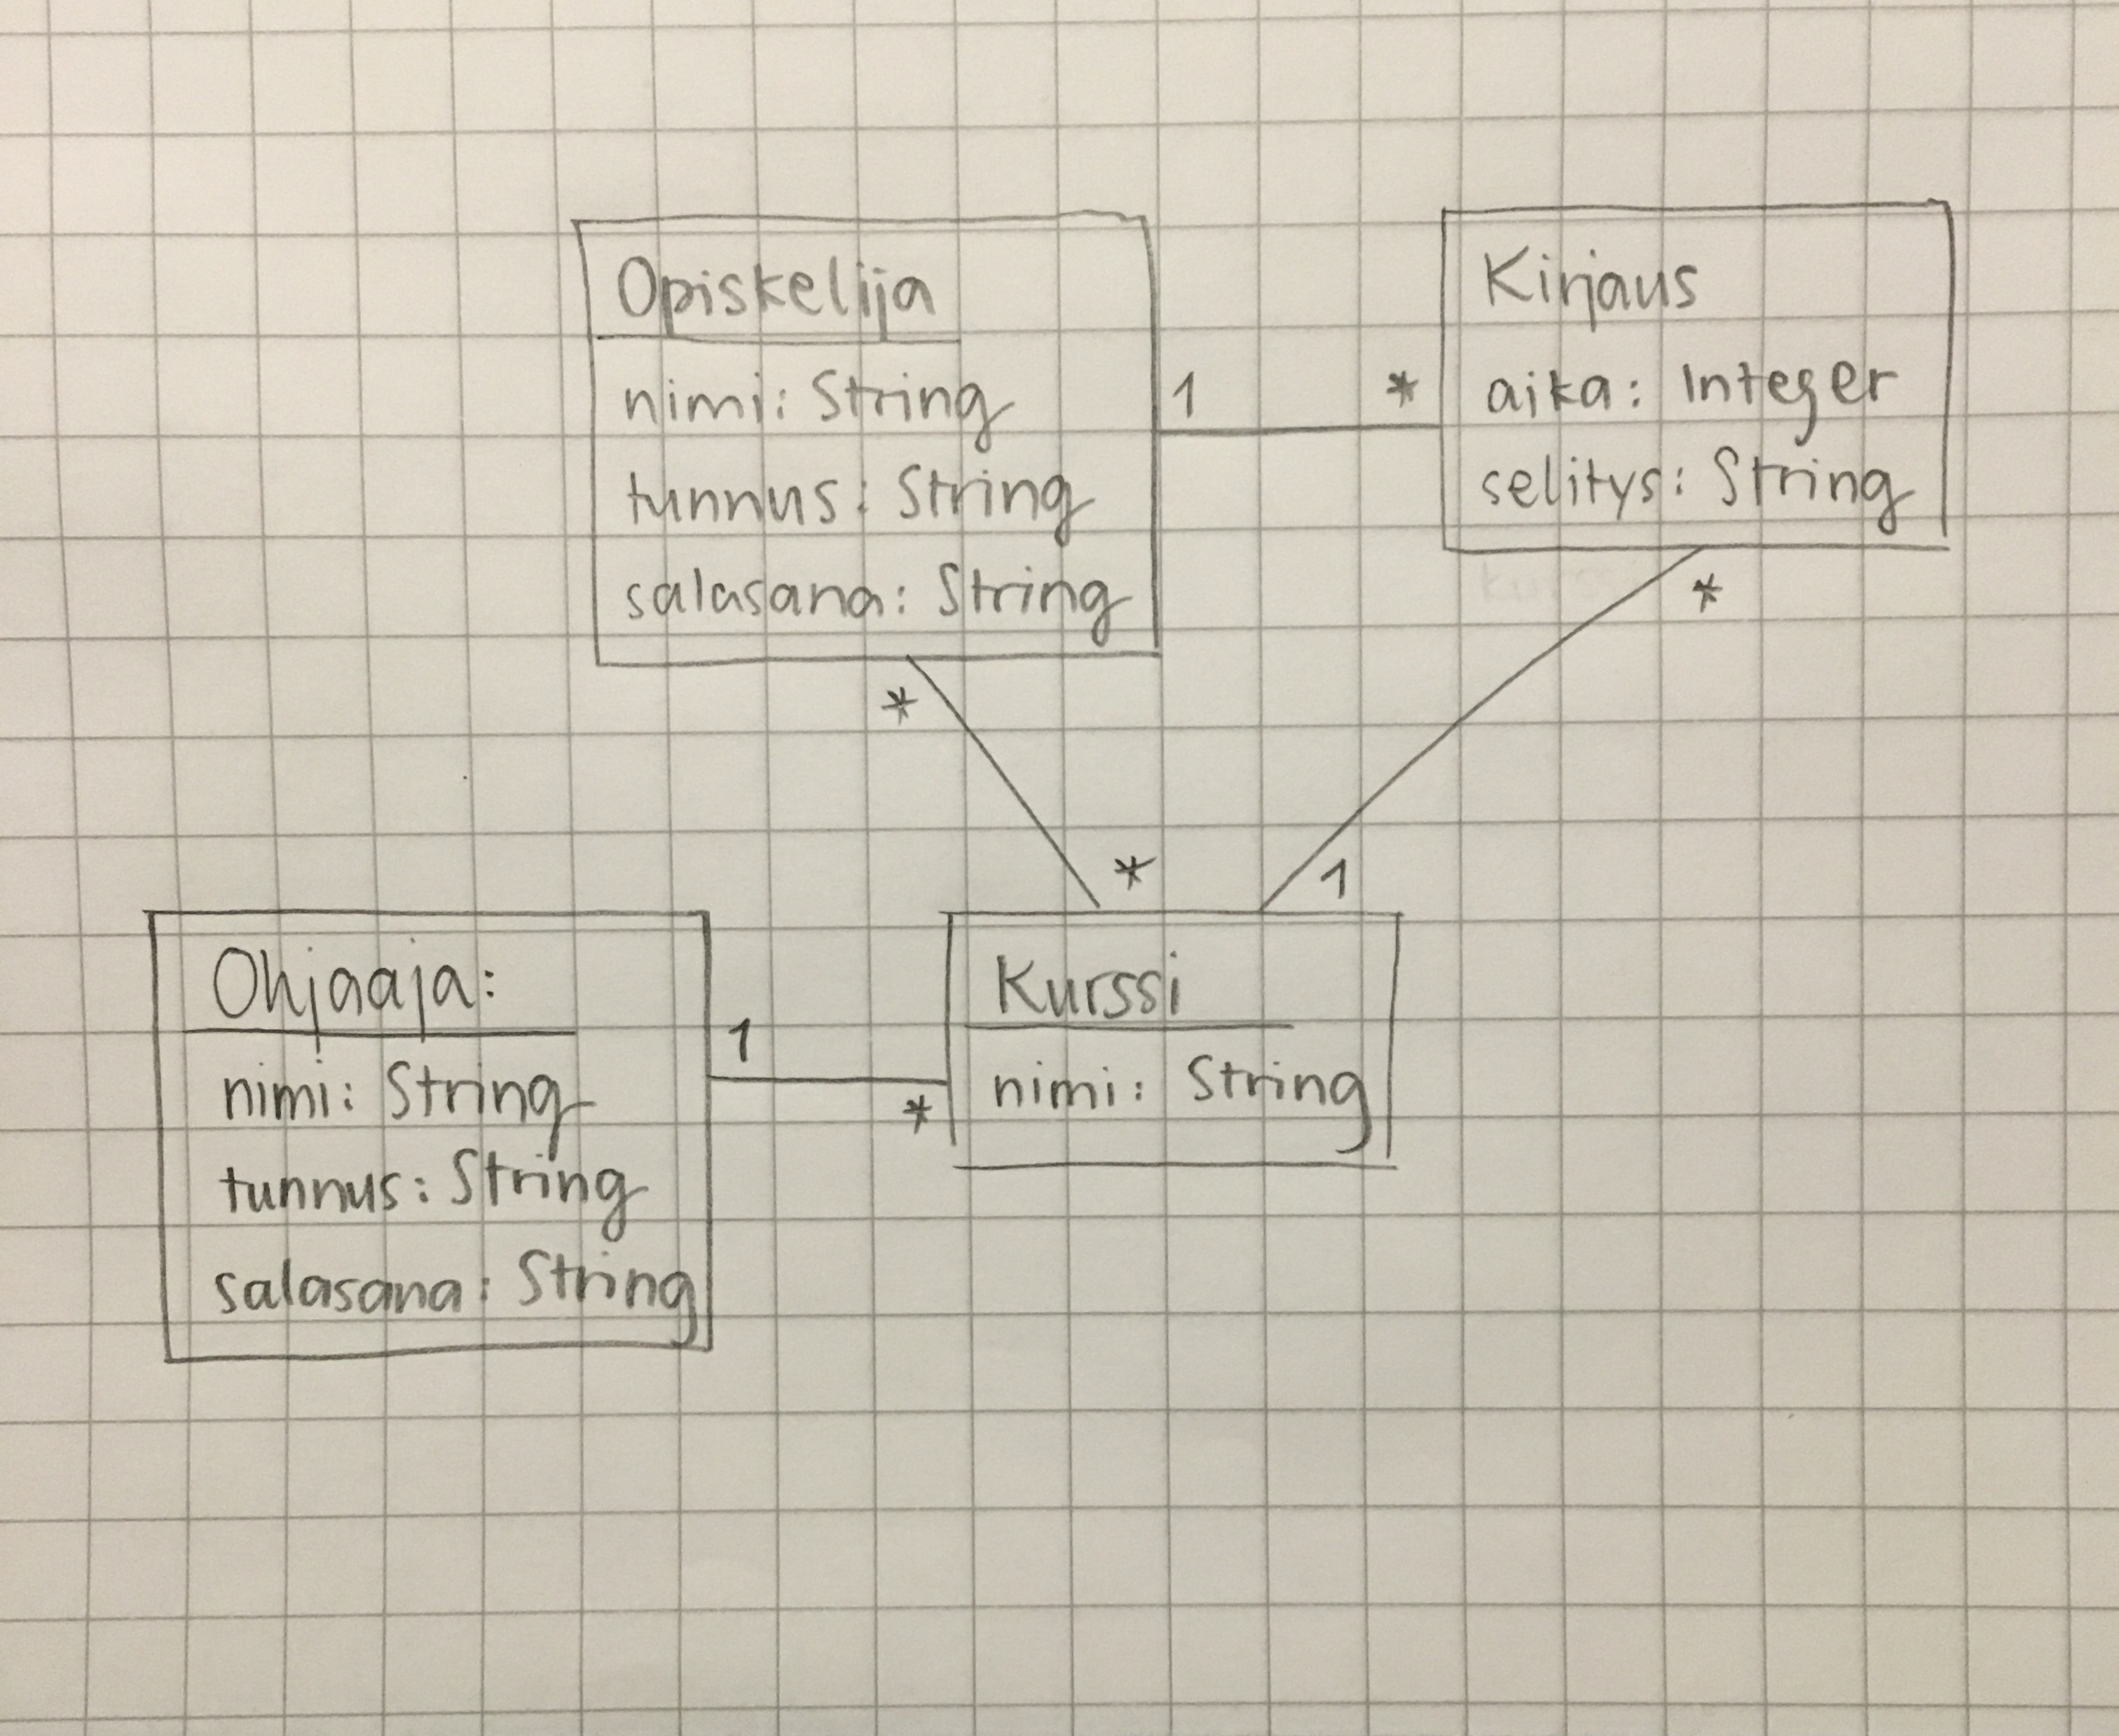 Opiskelija
nimi: String
tunnus: String
salasana: String
1
*
Kirjaus
aika: Integer
selitys: String
*
*
*
1
Ohjaaja:
nimi: String
tunnus: String
salasana: String
1
*
Kurssi
nimi: String